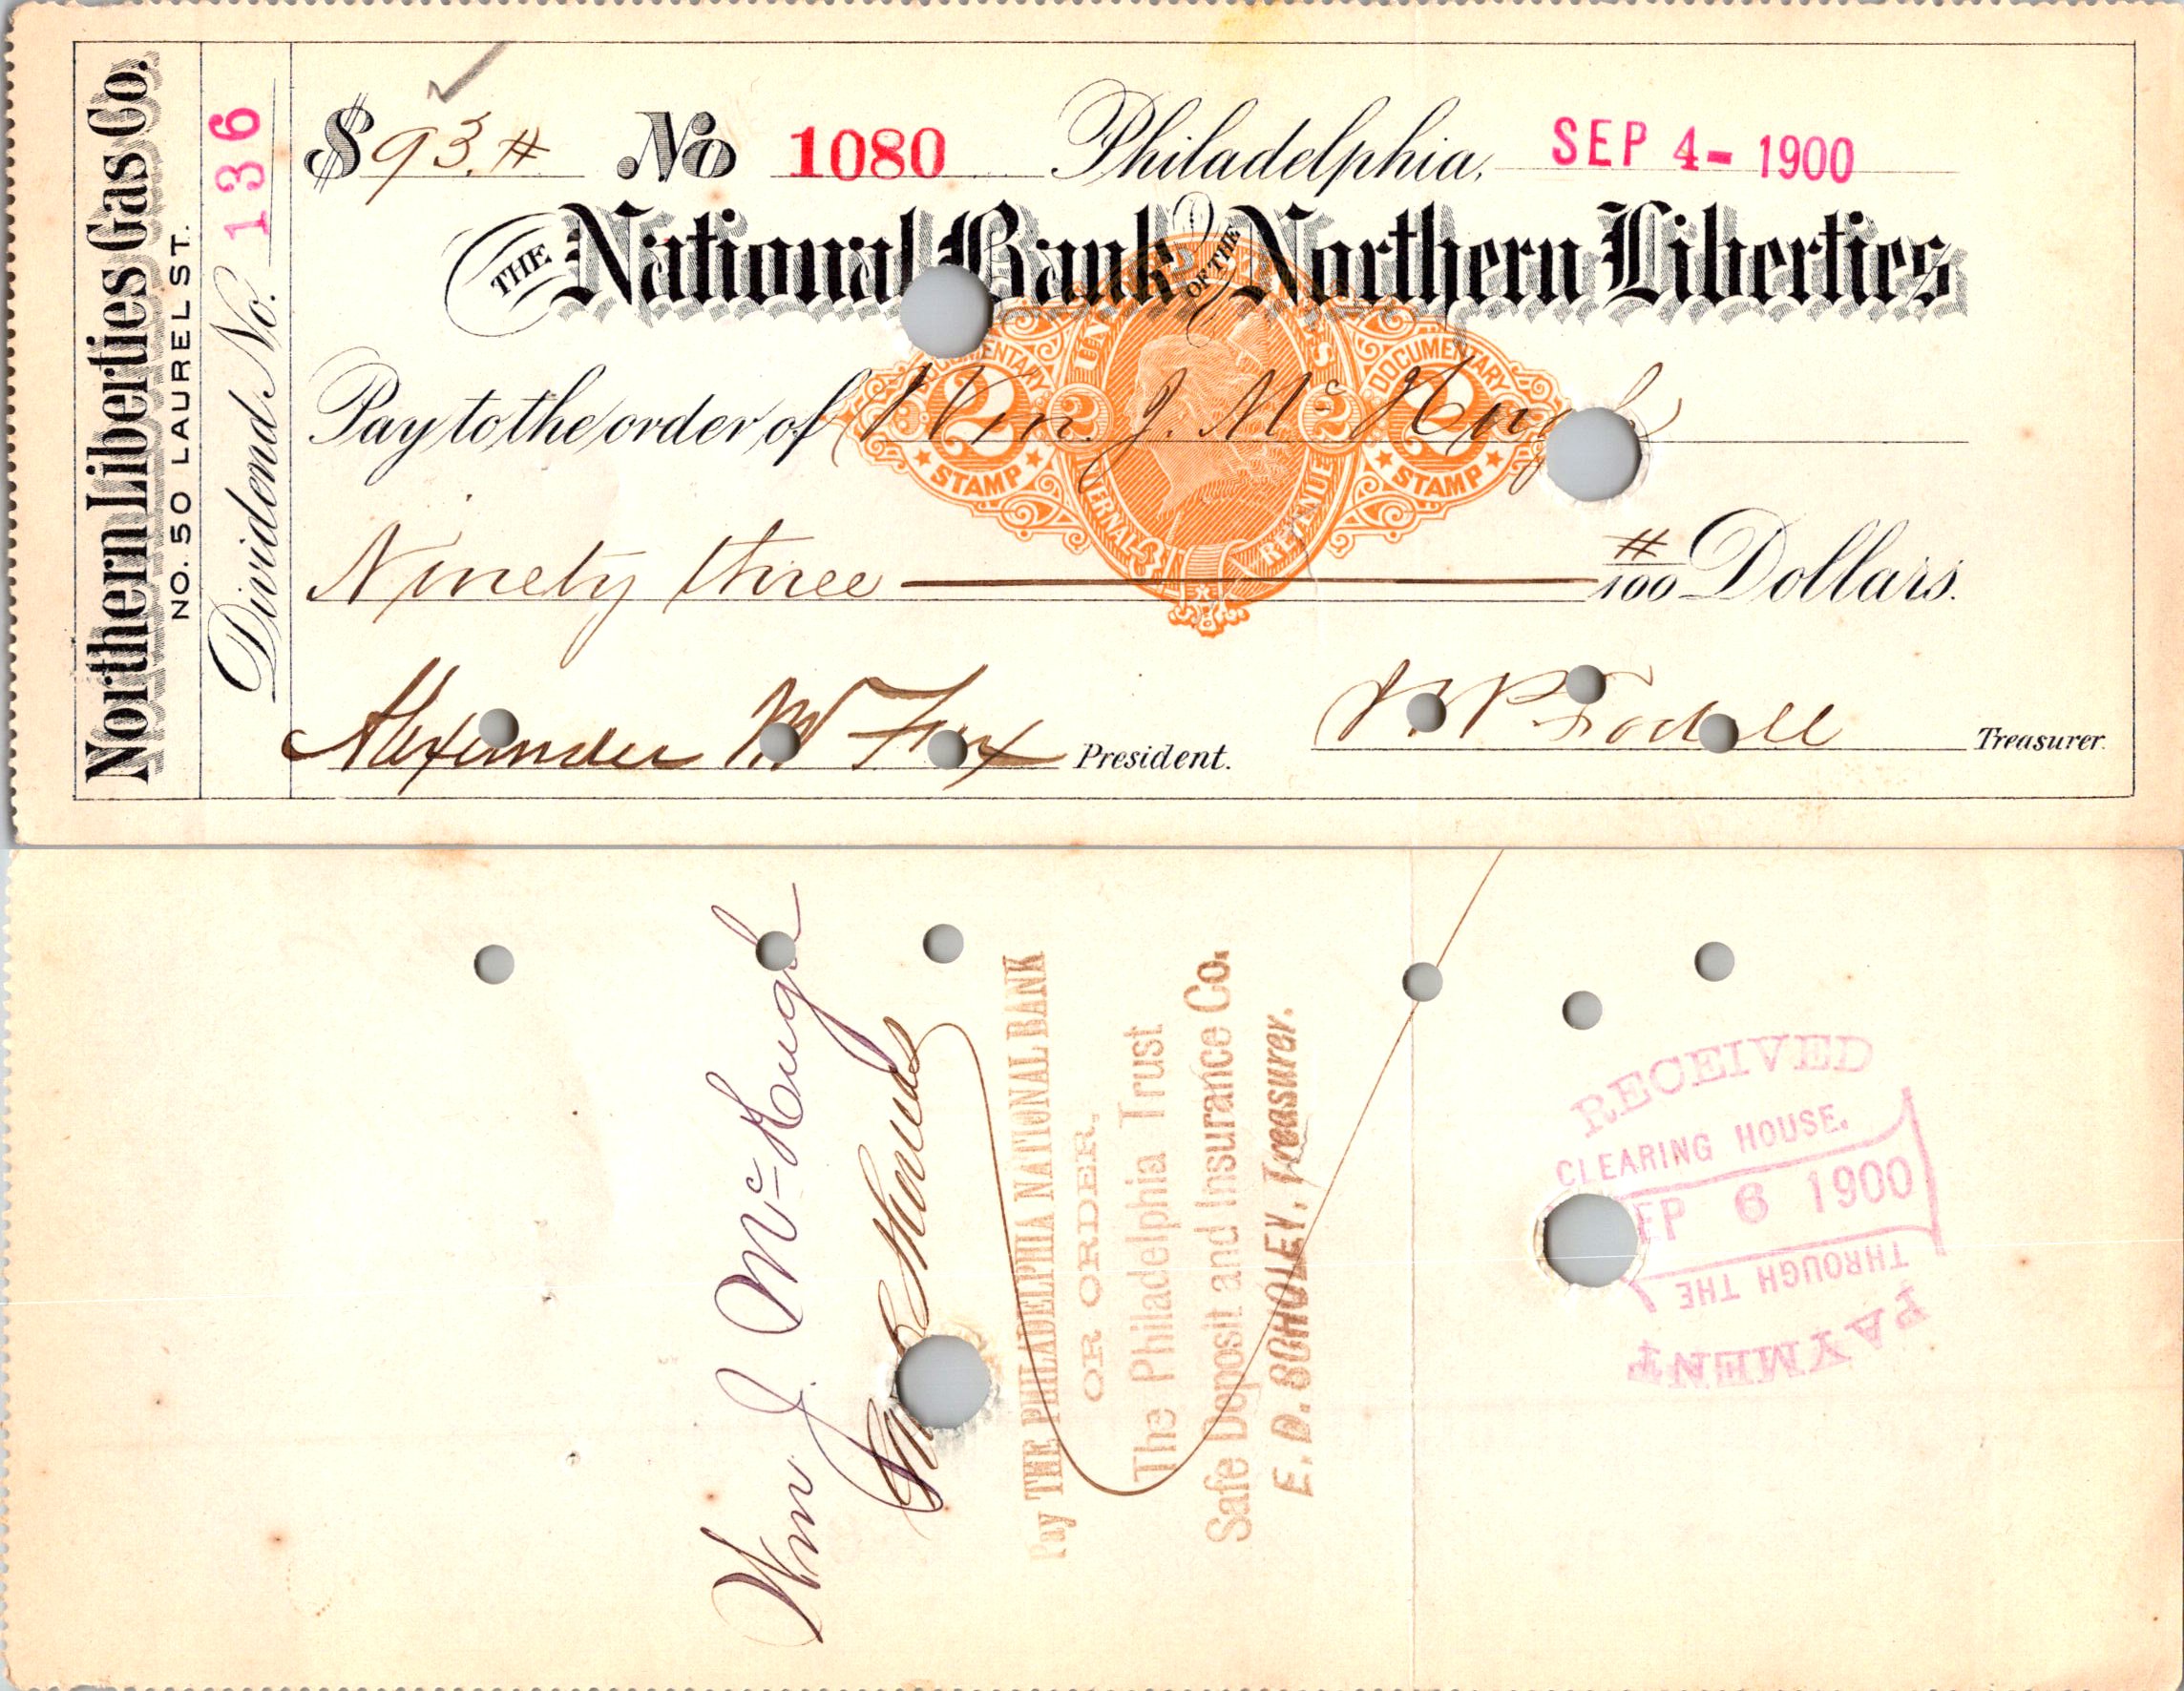 Northern Liberties Gas Co.
NO. 50 LAUREL ST.
Dividend No. 136
$ 93.# No 1080 Philadelphia, SEP 4- 1900
THE National Bank OF THE Northern Liberties
Pay to the order of Wm. J. McHugh
UNITED STATES INTERNAL REVENUE
DOCUMENTARY 2 STAMP
2 2
DOCUMENTARY 2 STAMP
Ninety three #/100 Dollars.
Alexander W Fox President.
Treasurer.
Wm J. McHugh
Pay THE PHILADELPHIA NATIONAL BANK
OR ORDER,
The Philadelphia Trust
Safe Deposit and Insurance Co.
E. D. SCHOLEY, Treasurer.
RECEIVED
CLEARING HOUSE.
SEP 6 1900
THROUGH THE
PAYMENT